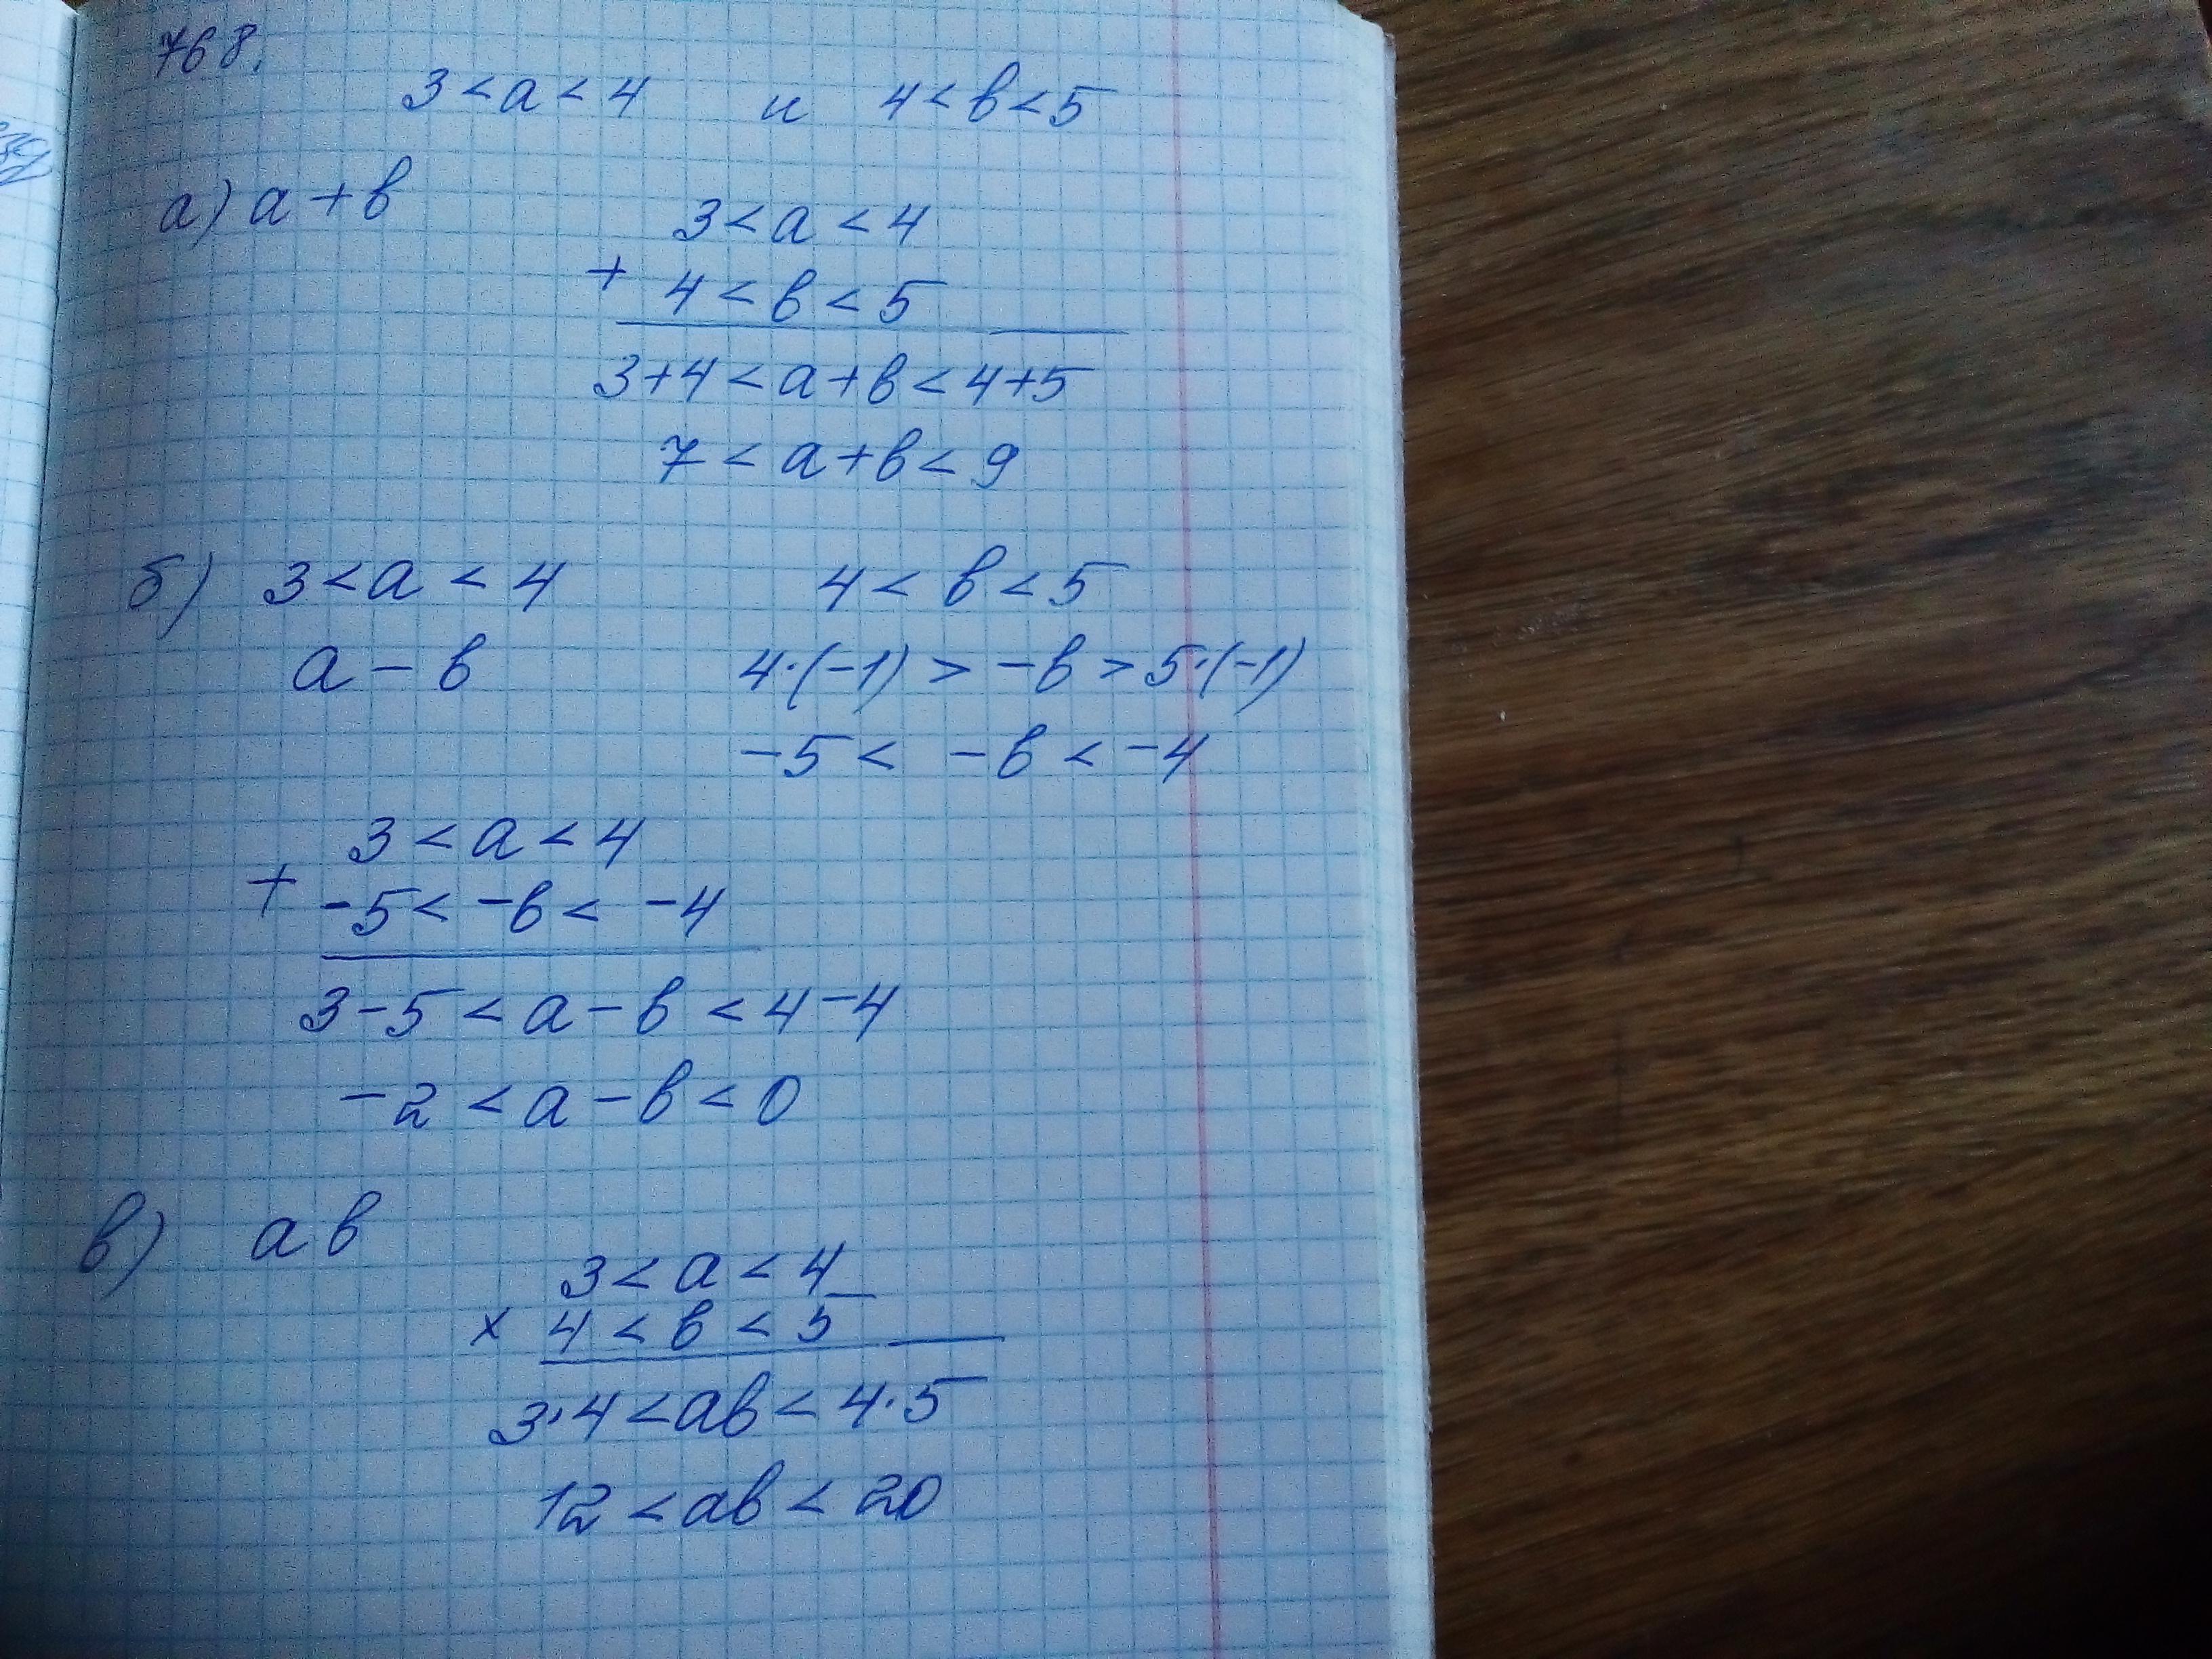 768.
3 < a < 4 и 4 < в < 5
а) a + в
3 < a < 4
+ 4 < в < 5
3+4 < a+в < 4+5
7 < a+в < 9
б) 3 < a < 4 4 < в < 5
a - в 4·(-1) > -в > 5·(-1)
-5 < -в < -4
3 < a < 4
+ -5 < -в < -4
3-5 < a-в < 4-4
-2 < a-в < 0
в) aв
3 < a < 4
× 4 < в < 5
3·4 < aв < 4·5
12 < aв < 20